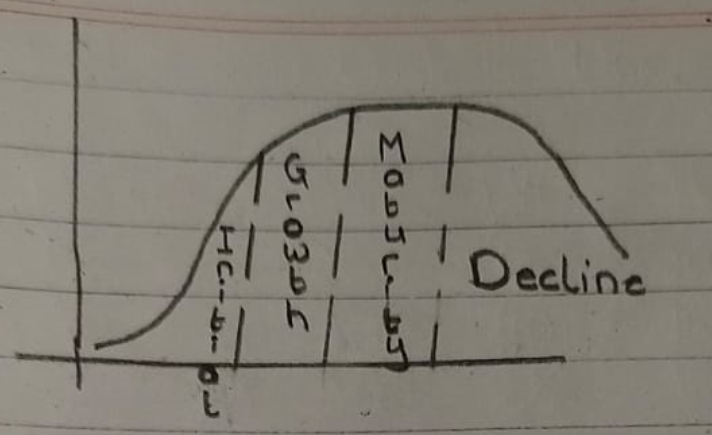 Initial
Growth
Maturity
Decline